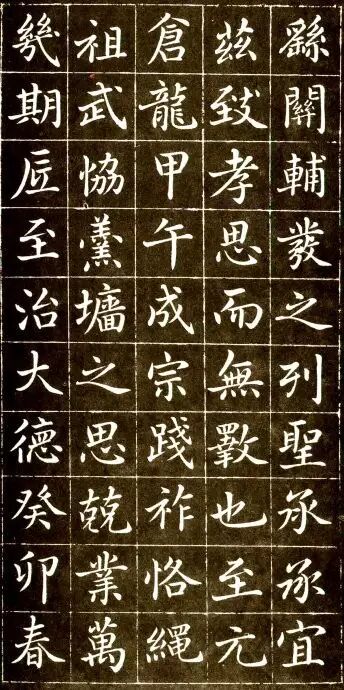 繇關輔發之列聖承承宜
茲致孝思而無斁也至元
倉龍甲午成宗踐祚恪繩
祖武協羹墻之思兢業萬
幾期底至治大德癸卯春